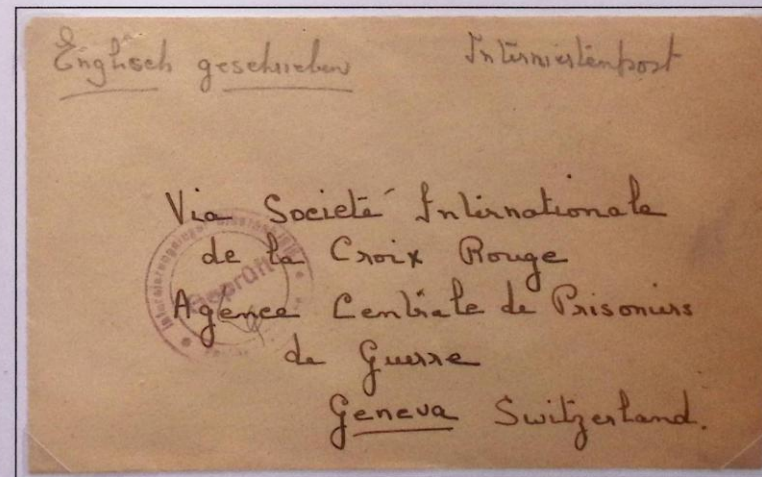 Englisch geschrieben
Interniertenpost
Via Societé Internationale
de la Croix Rouge
Agence Centrale de Prisoniers
de Guerre
Geneva Switzerland.
Geprüft